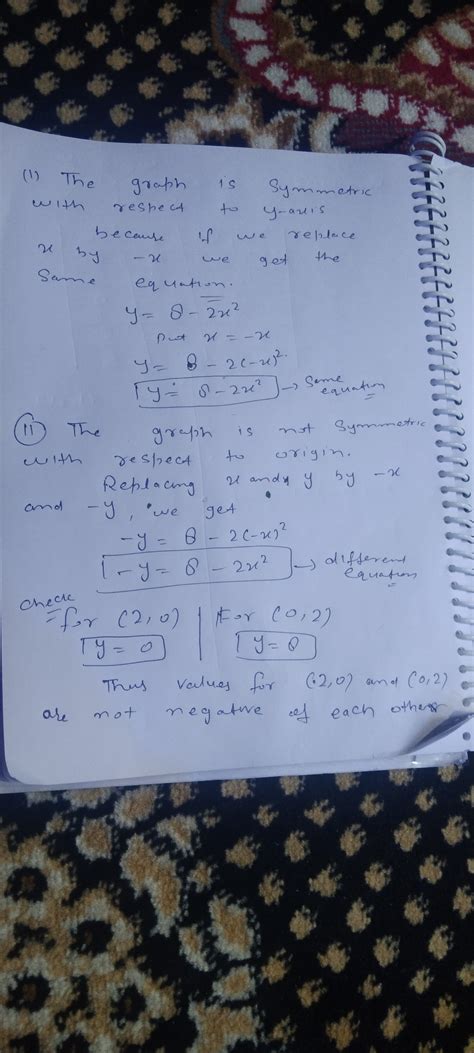 (1) The graph is Symmetric
with respect to y-axis
because if we replace
x by -x we get the
Same equation.
y = 8 - 2x²
Put x = -x
y = 8 - 2(-x)²
y = 8 - 2x² → Same equation
(11) The graph is not Symmetric
with respect to origin.
Replacing x and y by -x
and -y, we get
-y = 8 - 2(-x)²
-y = 8 - 2x² → different equation
Check
for (2,0) | For (0,2)
y = 0 | y = 8
Thus values for (2,0) and (0,2)
are not negative of each other